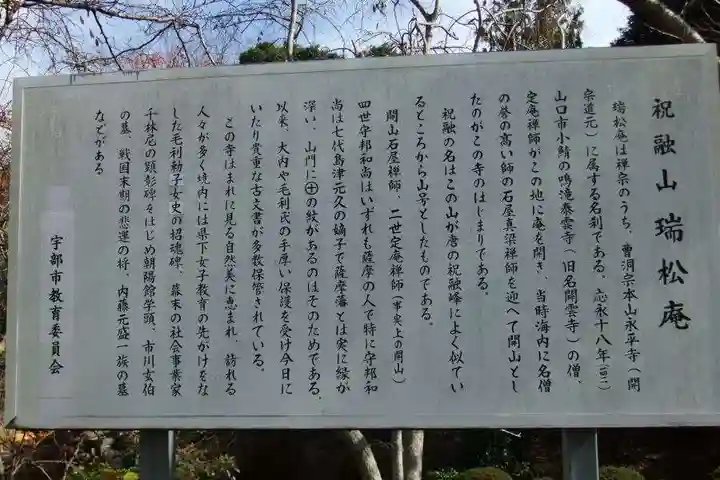 祝融山瑞松庵
瑞松庵は禅宗のうち、曹洞宗本山永平寺（開
宗道元）に属する名刹である。応永十八年（一四一一）
山口市小鯖の鳴滝泰雲寺（旧名開雲寺）の僧、
定庵禅師がこの地に庵を開き、当時海内に名僧
の誉の高い師の石屋真梁禅師を迎へて開山とし
たのがこの寺のはじまりである。
祝融の名はこの山が唐の祝融峰によく似てい
るところから山号としたものである。
開山石屋禅師、二世定庵禅師（事実上の開山）
四世守邦和尚はいずれも薩摩の人で特に守邦和
尚は七代島津元久の嫡子で薩摩藩とは実に縁が
深い、山門に㊉の紋があるのはそのためである。
以来、大内や毛利氏の手厚い保護を受け今日に
いたり貴重な古文書が多数保管されている。
この寺はまれに見る自然美に恵まれ、訪れる
人々が多く境内には県下女子教育の先がけをな
した毛利勅子女史の招魂碑、幕末の社会事業家
千林尼の顕彰碑をはじめ朝陽館学頭、市川玄伯
の墓、戦国末期の悲運の将、内藤元盛一族の墓
などがある
宇部市教育委員会